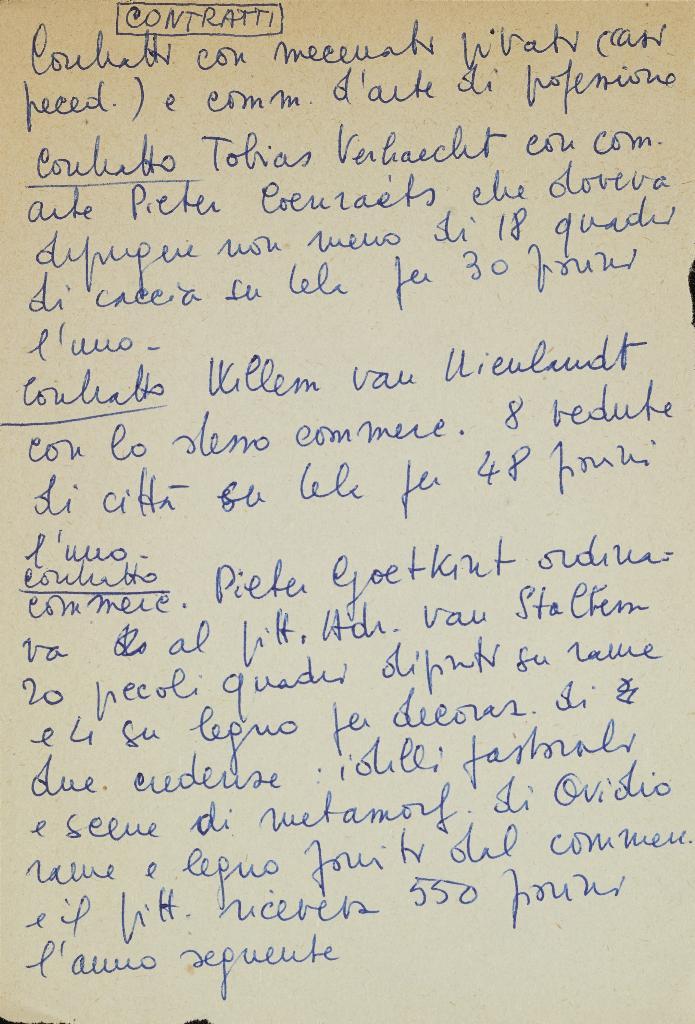 CONTRATTI
Contratti con mecenati privati (casi
preced.) e comm. d'arte di professione
Contratto Tobias Verhaecht con com.
arte Pieter Coenraets che doveva
dipingere non meno di 18 quadri
di caccia su tela per 30 fiorini
l'uno -
Contratto Willem van Nieulandt
con lo stesso commerc. 8 vedute
di città su tela per 48 fiorini
l'uno -
contratto
commerc. Pieter Goetkint ordina-
va al pitt. Adr. van Stalbem
20 piccoli quadri dipinti su rame
e 4 su legno per decoraz. di
due credenze : idilli pastorali
e scene di metamorf. di Ovidio
rame e legno forniti dal commerc.
e il pitt. riceveva 550 fiorini
l'anno seguente